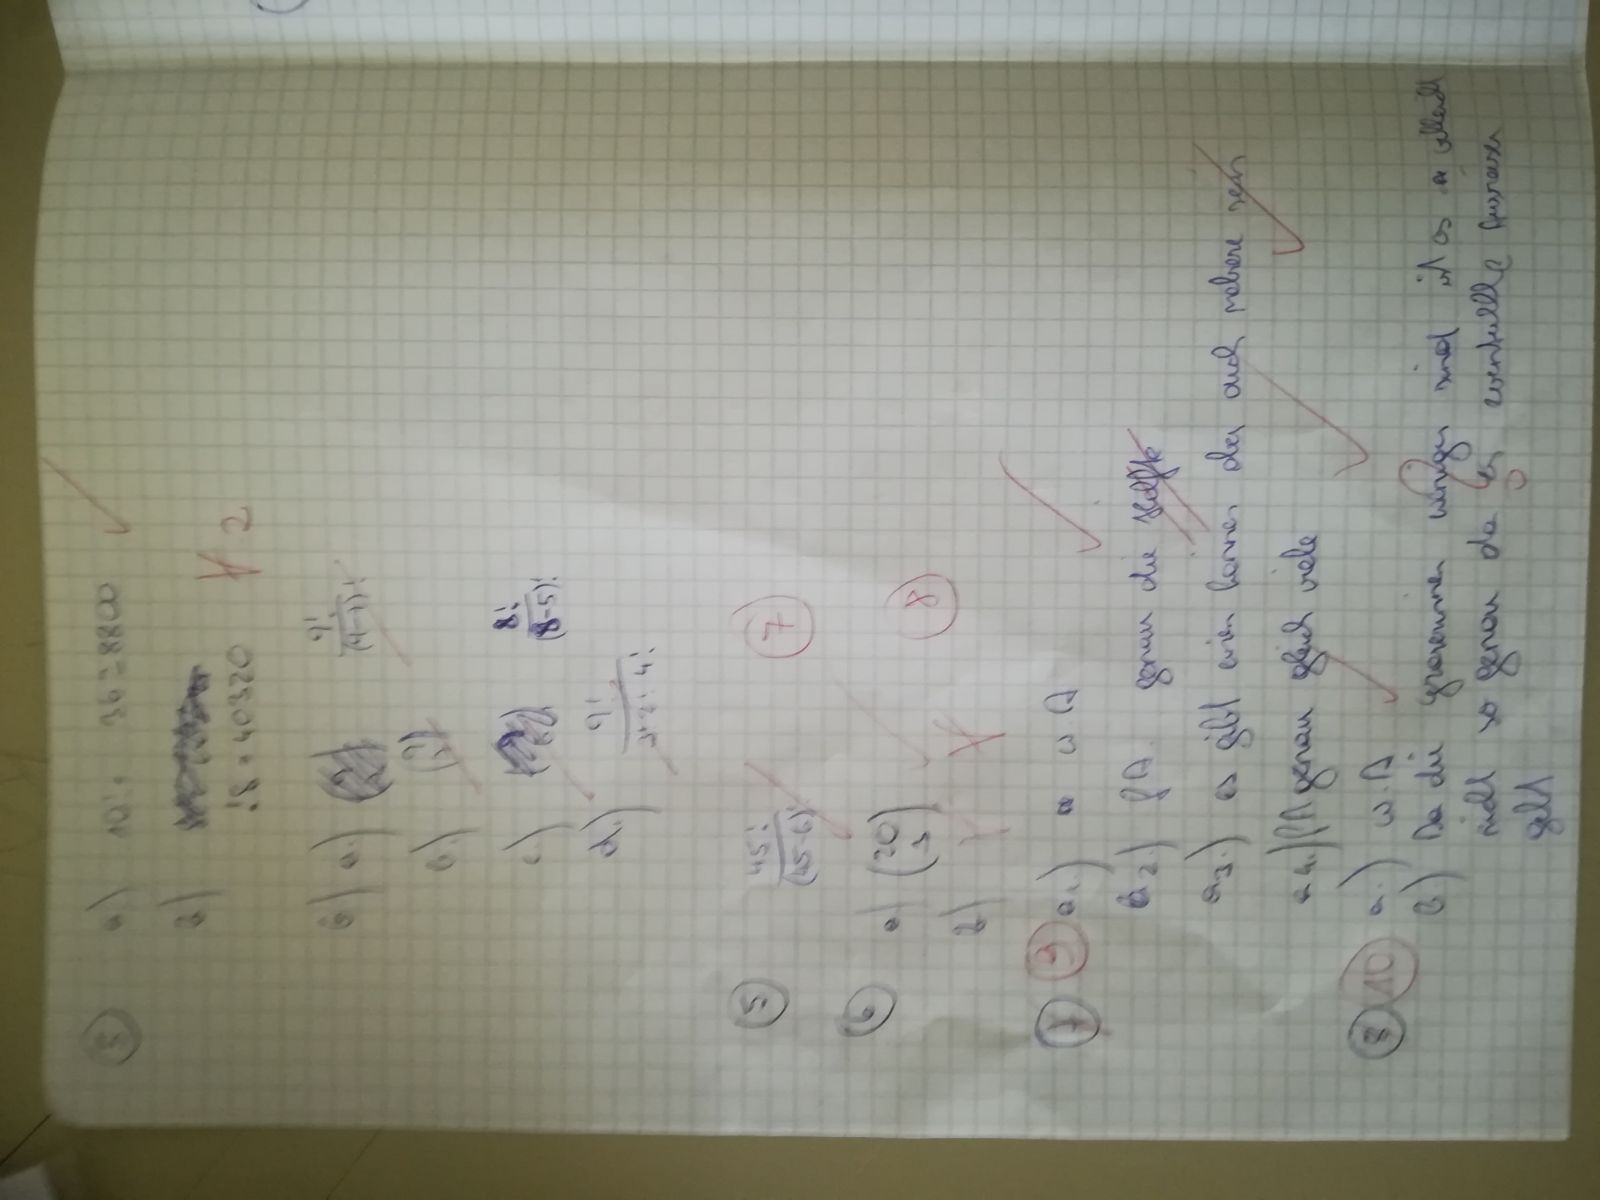 a.) 10! = 3628800
b)
!8 = 40320 2
6) a.) 9!
(9-7)!
b.)
c.) 8!
(8-5)!
d.) 9!
3! 2! 4!
5 45! 7
(45-6)!
6 a) (20
3) 8
b)
7 9 a1.) w A
a2.) f A. genau die Hälfte
a3.) es gibt einen können aber auch mehrere sein
a4.) f A genau gleich viele
8 10 a.) w. A
b) Da die weniger sind ist es
nicht so genau da es eventuelle
gibt